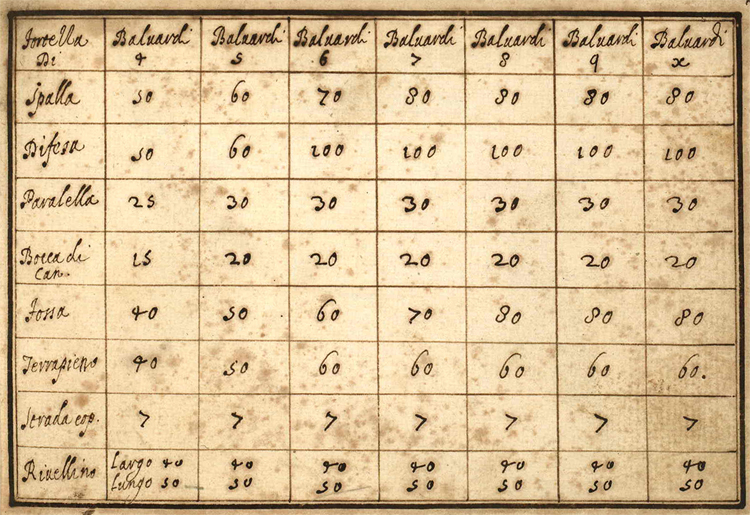 Fortella Baluardi Baluardi Baluardi Baluardi Baluardi Baluardi Baluardi
Di 4 5 6 7 8 9 x
Spalla 50 60 70 80 80 80 80
Difesa 50 60 100 100 100 100 100
Paralella 25 30 30 30 30 30 30
Bocca di 15 20 20 20 20 20 20
Can.
Fossa 40 50 60 70 80 80 80
Terrapieno 40 50 60 60 60 60 60.
Strada cop. 7 7 7 7 7 7 7
Rivellino Largo 40 40 40 40 40 40 40
Lungo 50 50 50 50 50 50 50